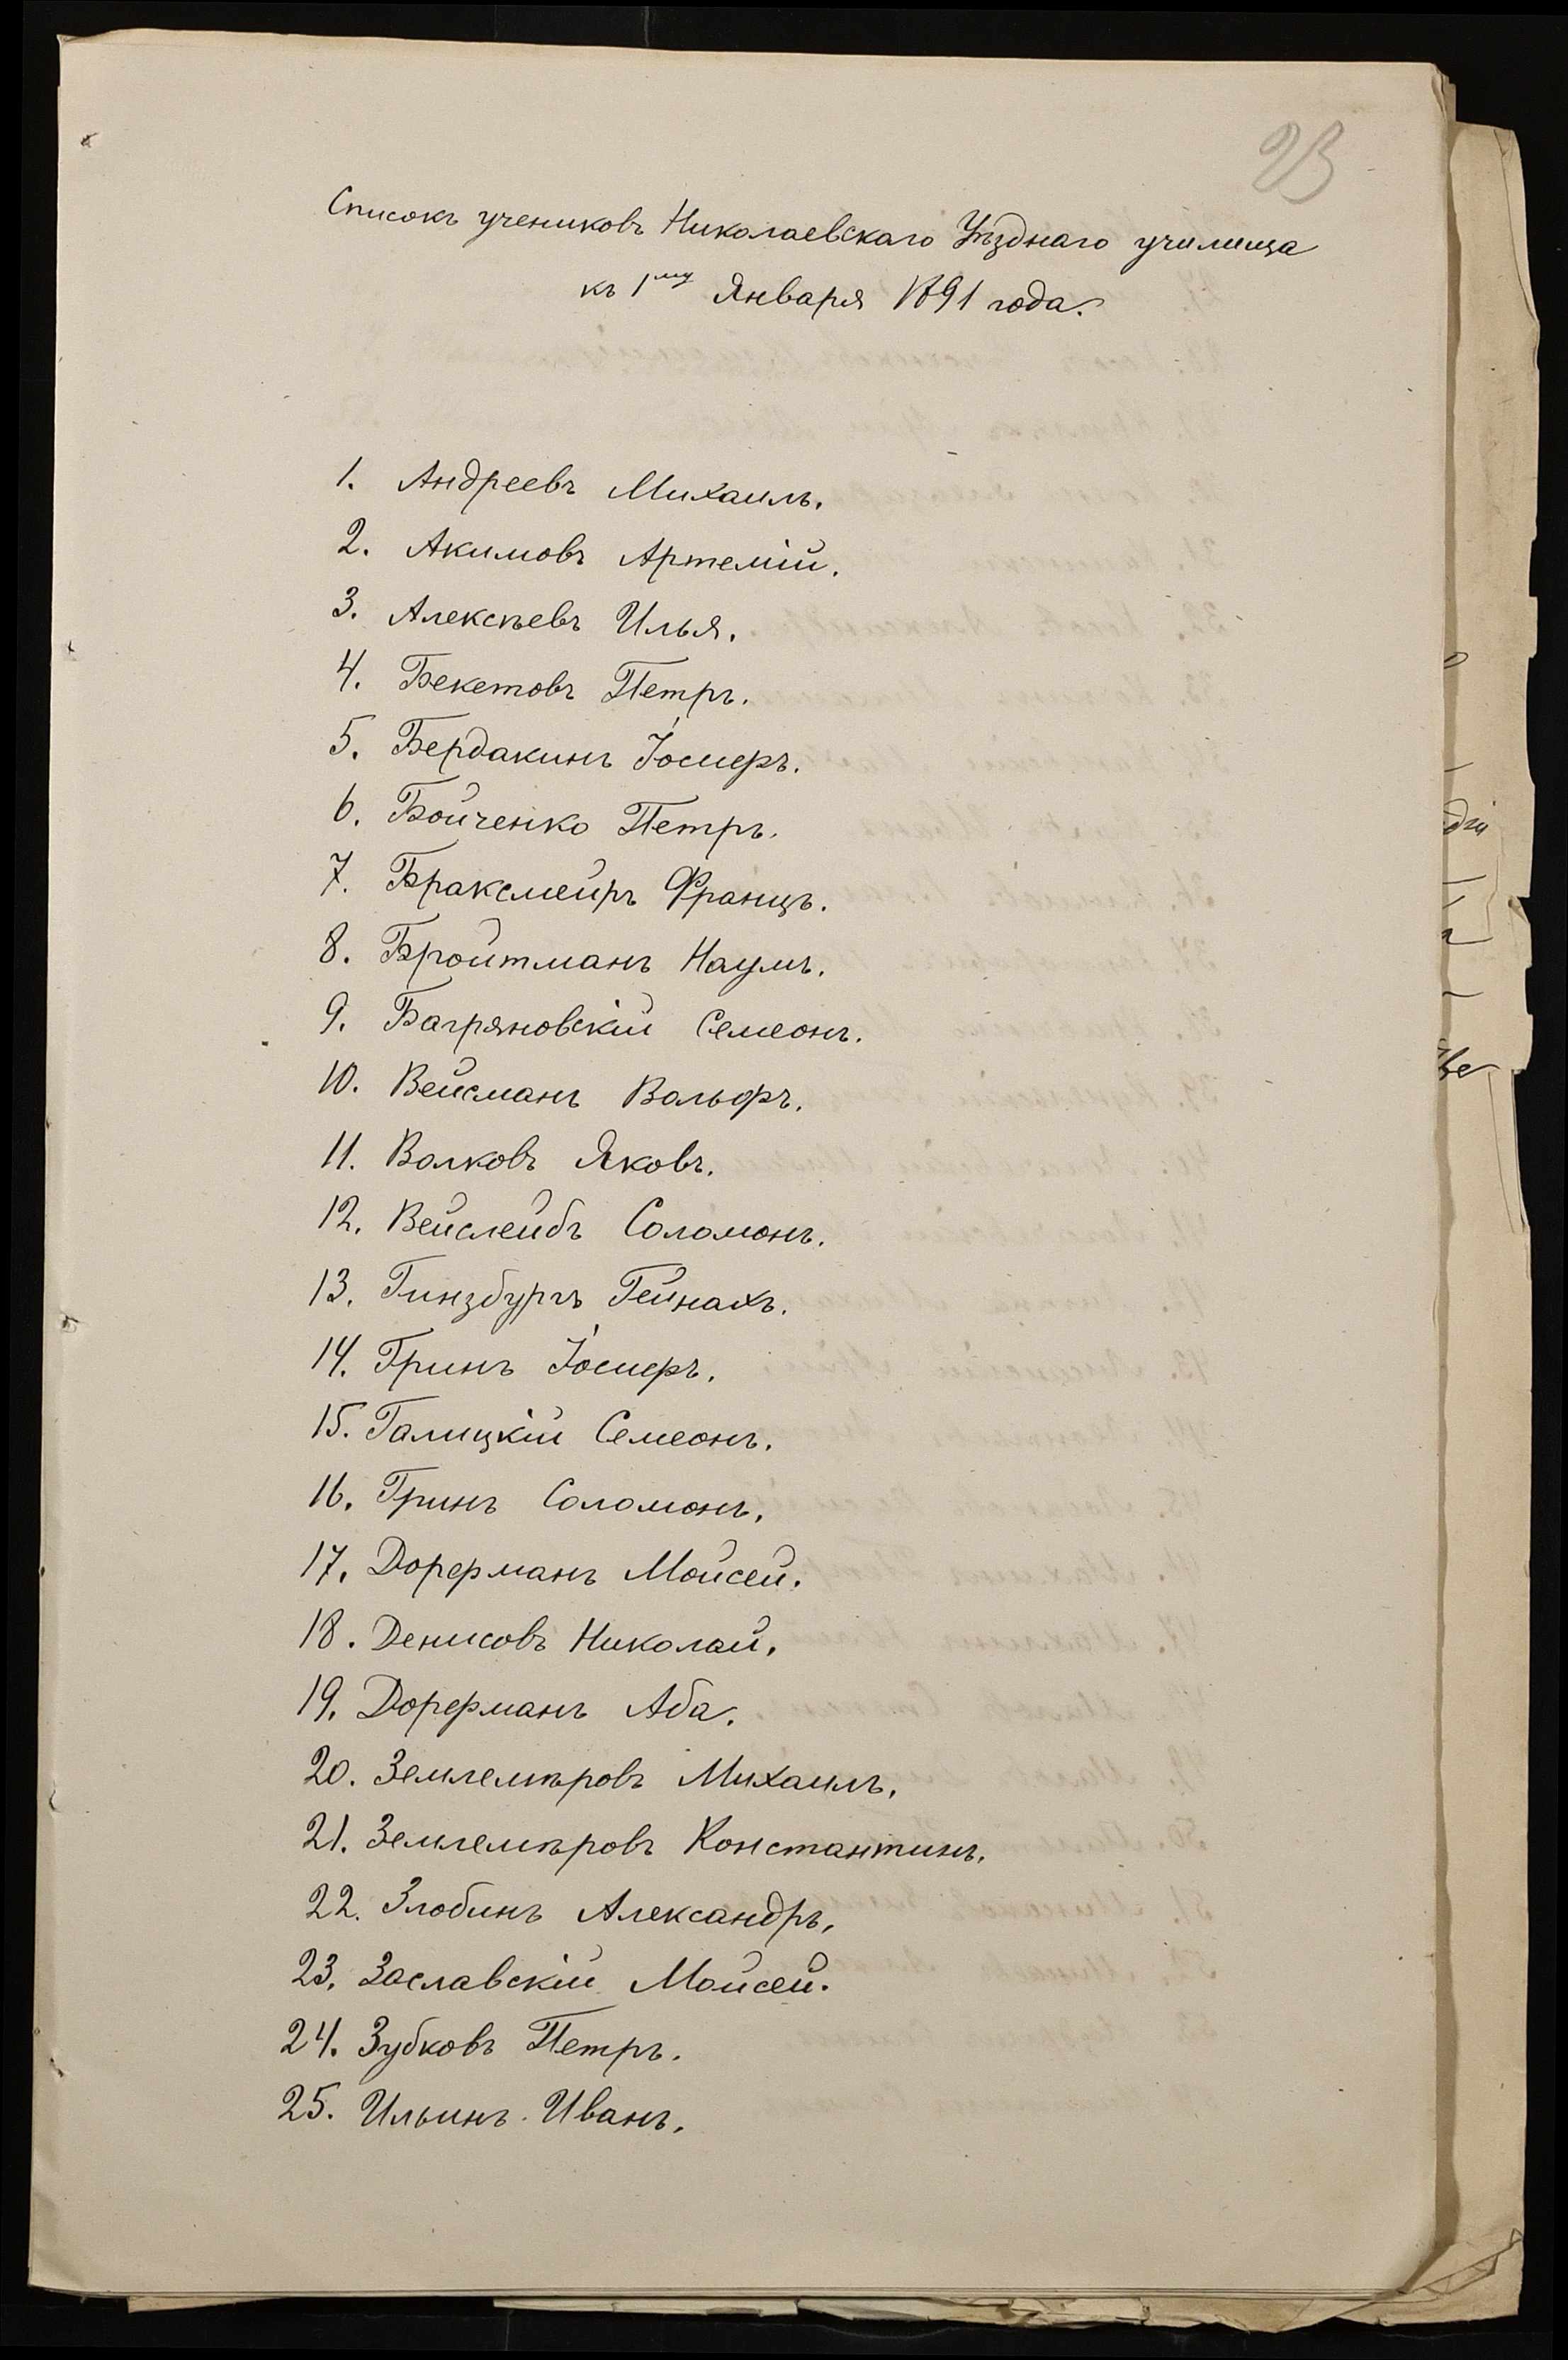 23
Списокъ учениковъ Николаевскаго Уѣзднаго училища
къ 1му Января 1891 года.
1. Андреевъ Михаилъ.
2. Акимовъ Артемій.
3. Алексѣевъ Илья.
4. Бекетовъ Петръ.
5. Бердакинъ Іосифъ.
6. Бойченко Петръ.
7. Браксмейръ Францъ.
8. Бройтманъ Наумъ.
9. Багряновскій Семеонъ.
10. Вейсманъ Вольфъ.
11. Волковъ Яковъ.
12. Вейслейбъ Соломонъ.
13. Гинзбургъ Гейнахъ.
14. Гринъ Іосифъ.
15. Галицкій Семеонъ.
16. Гринъ Соломонъ.
17. Дорфманъ Мойсей.
18. Денисовъ Николай.
19. Дорфманъ Аба.
20. Землемѣровъ Михаилъ.
21. Землемѣровъ Константинъ.
22. Злобинъ Александръ.
23. Заславскій Мойсей.
24. Зубковъ Петръ.
25. Ильинъ Иванъ.